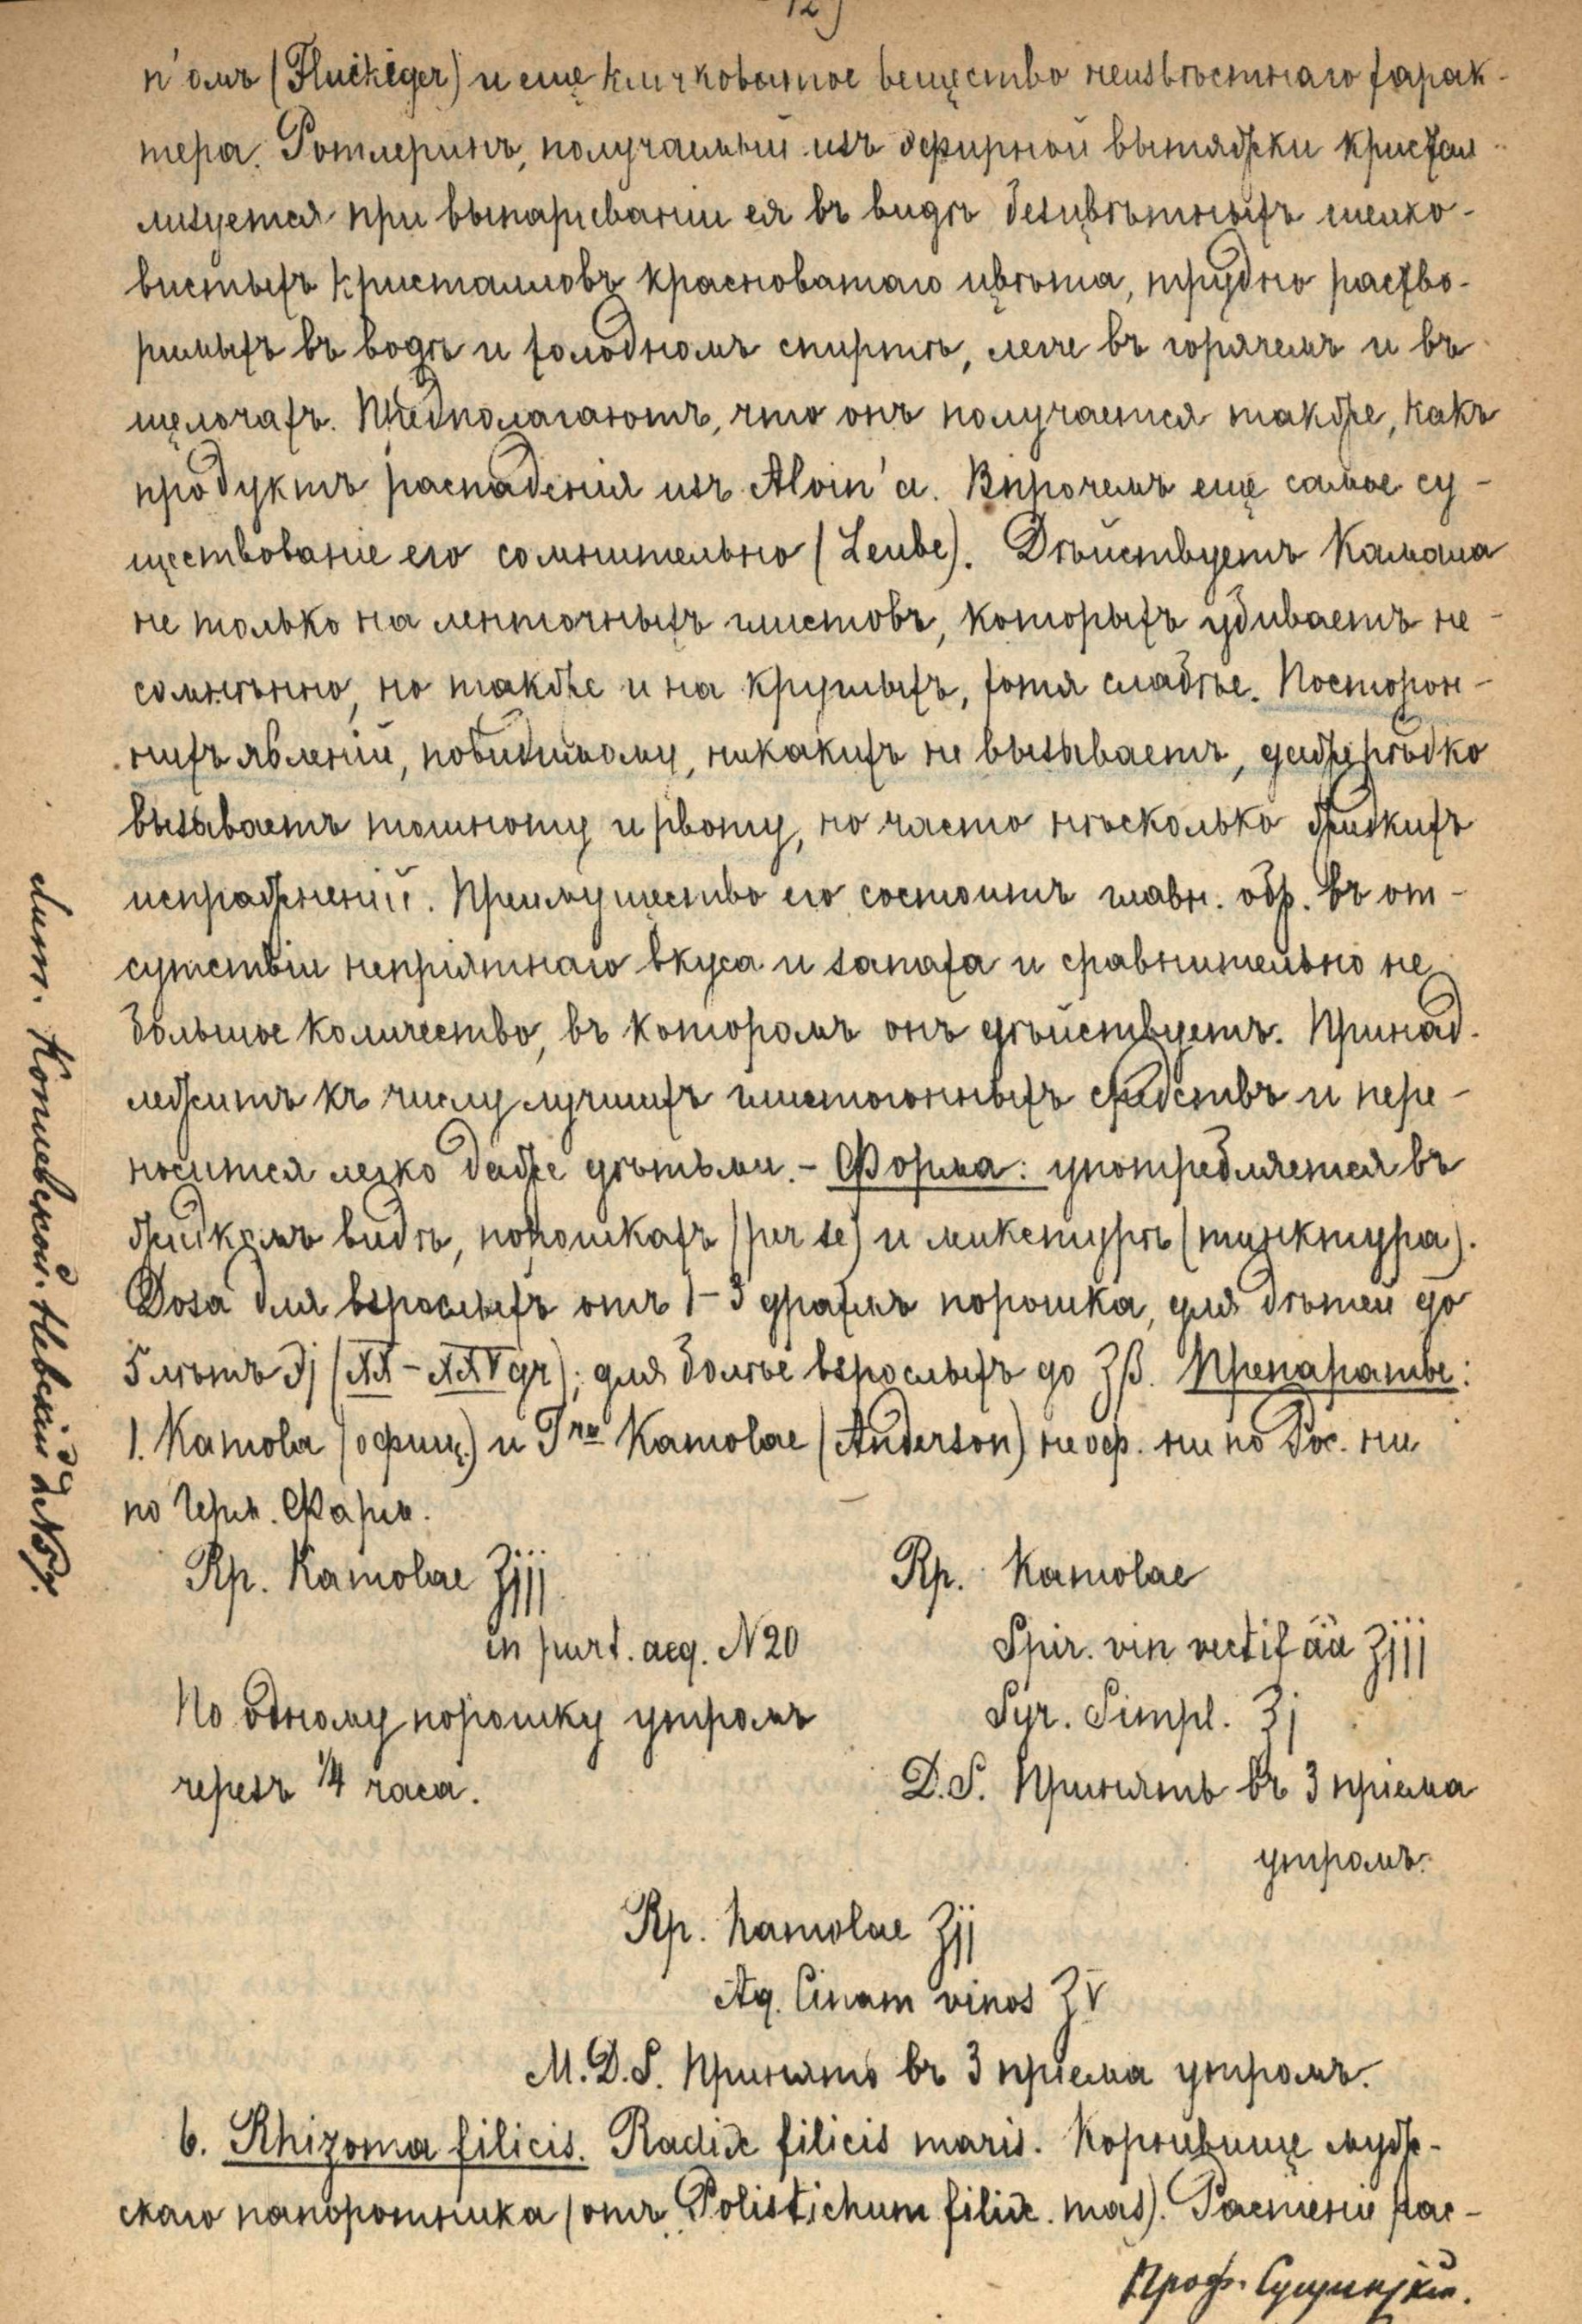 12)
н'омъ (Fluckiger) и еще клочковатое вещество неизвѣстнаго харак-
тера. Ротлеринъ, получаемый изъ эфирной вытяжки кристал-
лизуется при выпариваніи ея въ видѣ безцвѣтныхъ шелко-
вистыхъ кристалловъ красноватаго цвѣта, трудно раство-
римыхъ въ водѣ и холодномъ спиртѣ, легче въ горячемъ и въ
щелочахъ. Предполагаютъ, что онъ получается также, какъ
продуктъ распаденія изъ Aloin'а. Впрочемъ еще самое су-
ществованіе его сомнительно (Leube). Дѣйствуетъ Камала
не только на ленточныхъ глистовъ, которыхъ убиваетъ не-
сомнѣнно, но также и на круглыхъ, хотя слабѣе. Посторон-
нихъ явленій, повидимому, никакихъ не вызываетъ, даже рѣдко
вызываетъ тошноту и рвоту, но часто нѣсколько жидкихъ
испражненій. Преимущество его состоитъ главн. обр. въ от-
сутствіи непріятнаго вкуса и запаха и сравнительно не
большое количество, въ которомъ онъ дѣйствуетъ. Принад-
лежитъ къ числу лучшихъ глистогонныхъ средствъ и пере-
носится легко даже дѣтьми. - Форма: употребляется въ
жидкомъ видѣ, порошкахъ (per se) и микстурѣ (тинктура).
Доза для взрослыхъ отъ 1-3 драхмъ порошка, для дѣтей до
5 лѣтъ ℈j (XX-XXV gr); для болѣе взрослыхъ до ʒβ. Препараты:
1. Kamola (офиц.) и Tra Kamolae (Anderson) не оф. ни по Рос. ни
по Герм. Фарм.
Rp. Kamolae ʒjjj
in part. aeq. N20
По одному порошку утромъ
черезъ 1/4 часа.
Rp. Kamolae
Spir. vin rectif āā ʒjjj
Syr. Simpl. ℥j
D.S. Принять въ 3 пріема
утромъ.
Rp. Kamolae ʒjj
Aq. Cinam vinos ℥V
M.D.S. Принять въ 3 пріема утромъ.
6. Rhizoma filicis. Radix filicis maris. Корневище муж-
скаго папоротника (отъ Polistichum filix. mas). Растеніе рас-
Проф. Сущинскій.
Лит. Коплевской. Невскій д №